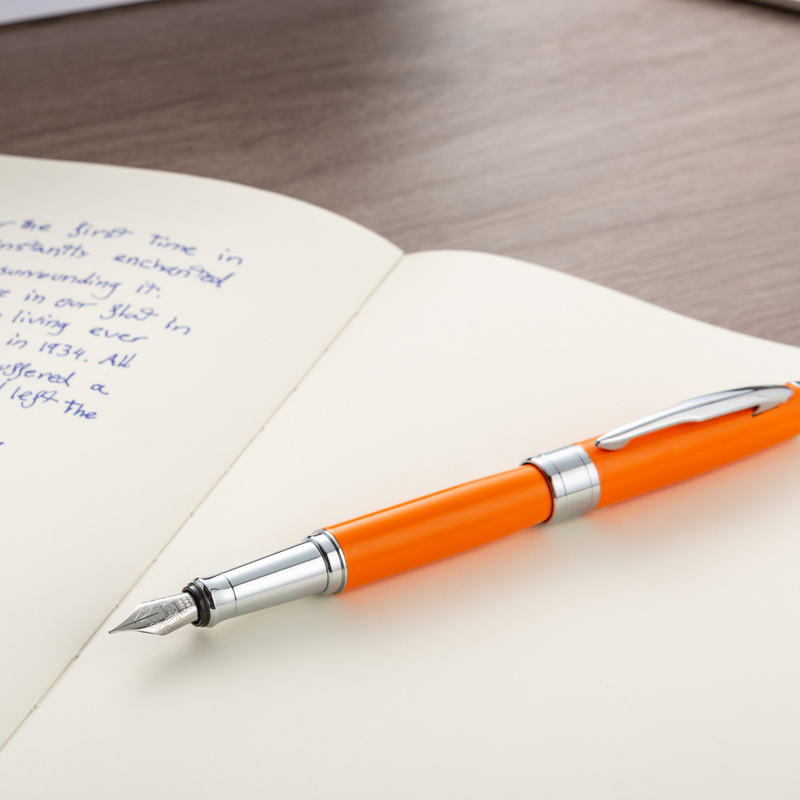 the first Time in
instantly enchanted
surrounding it.
in our flat in
living ever
in 1934. All
suffered a
left the